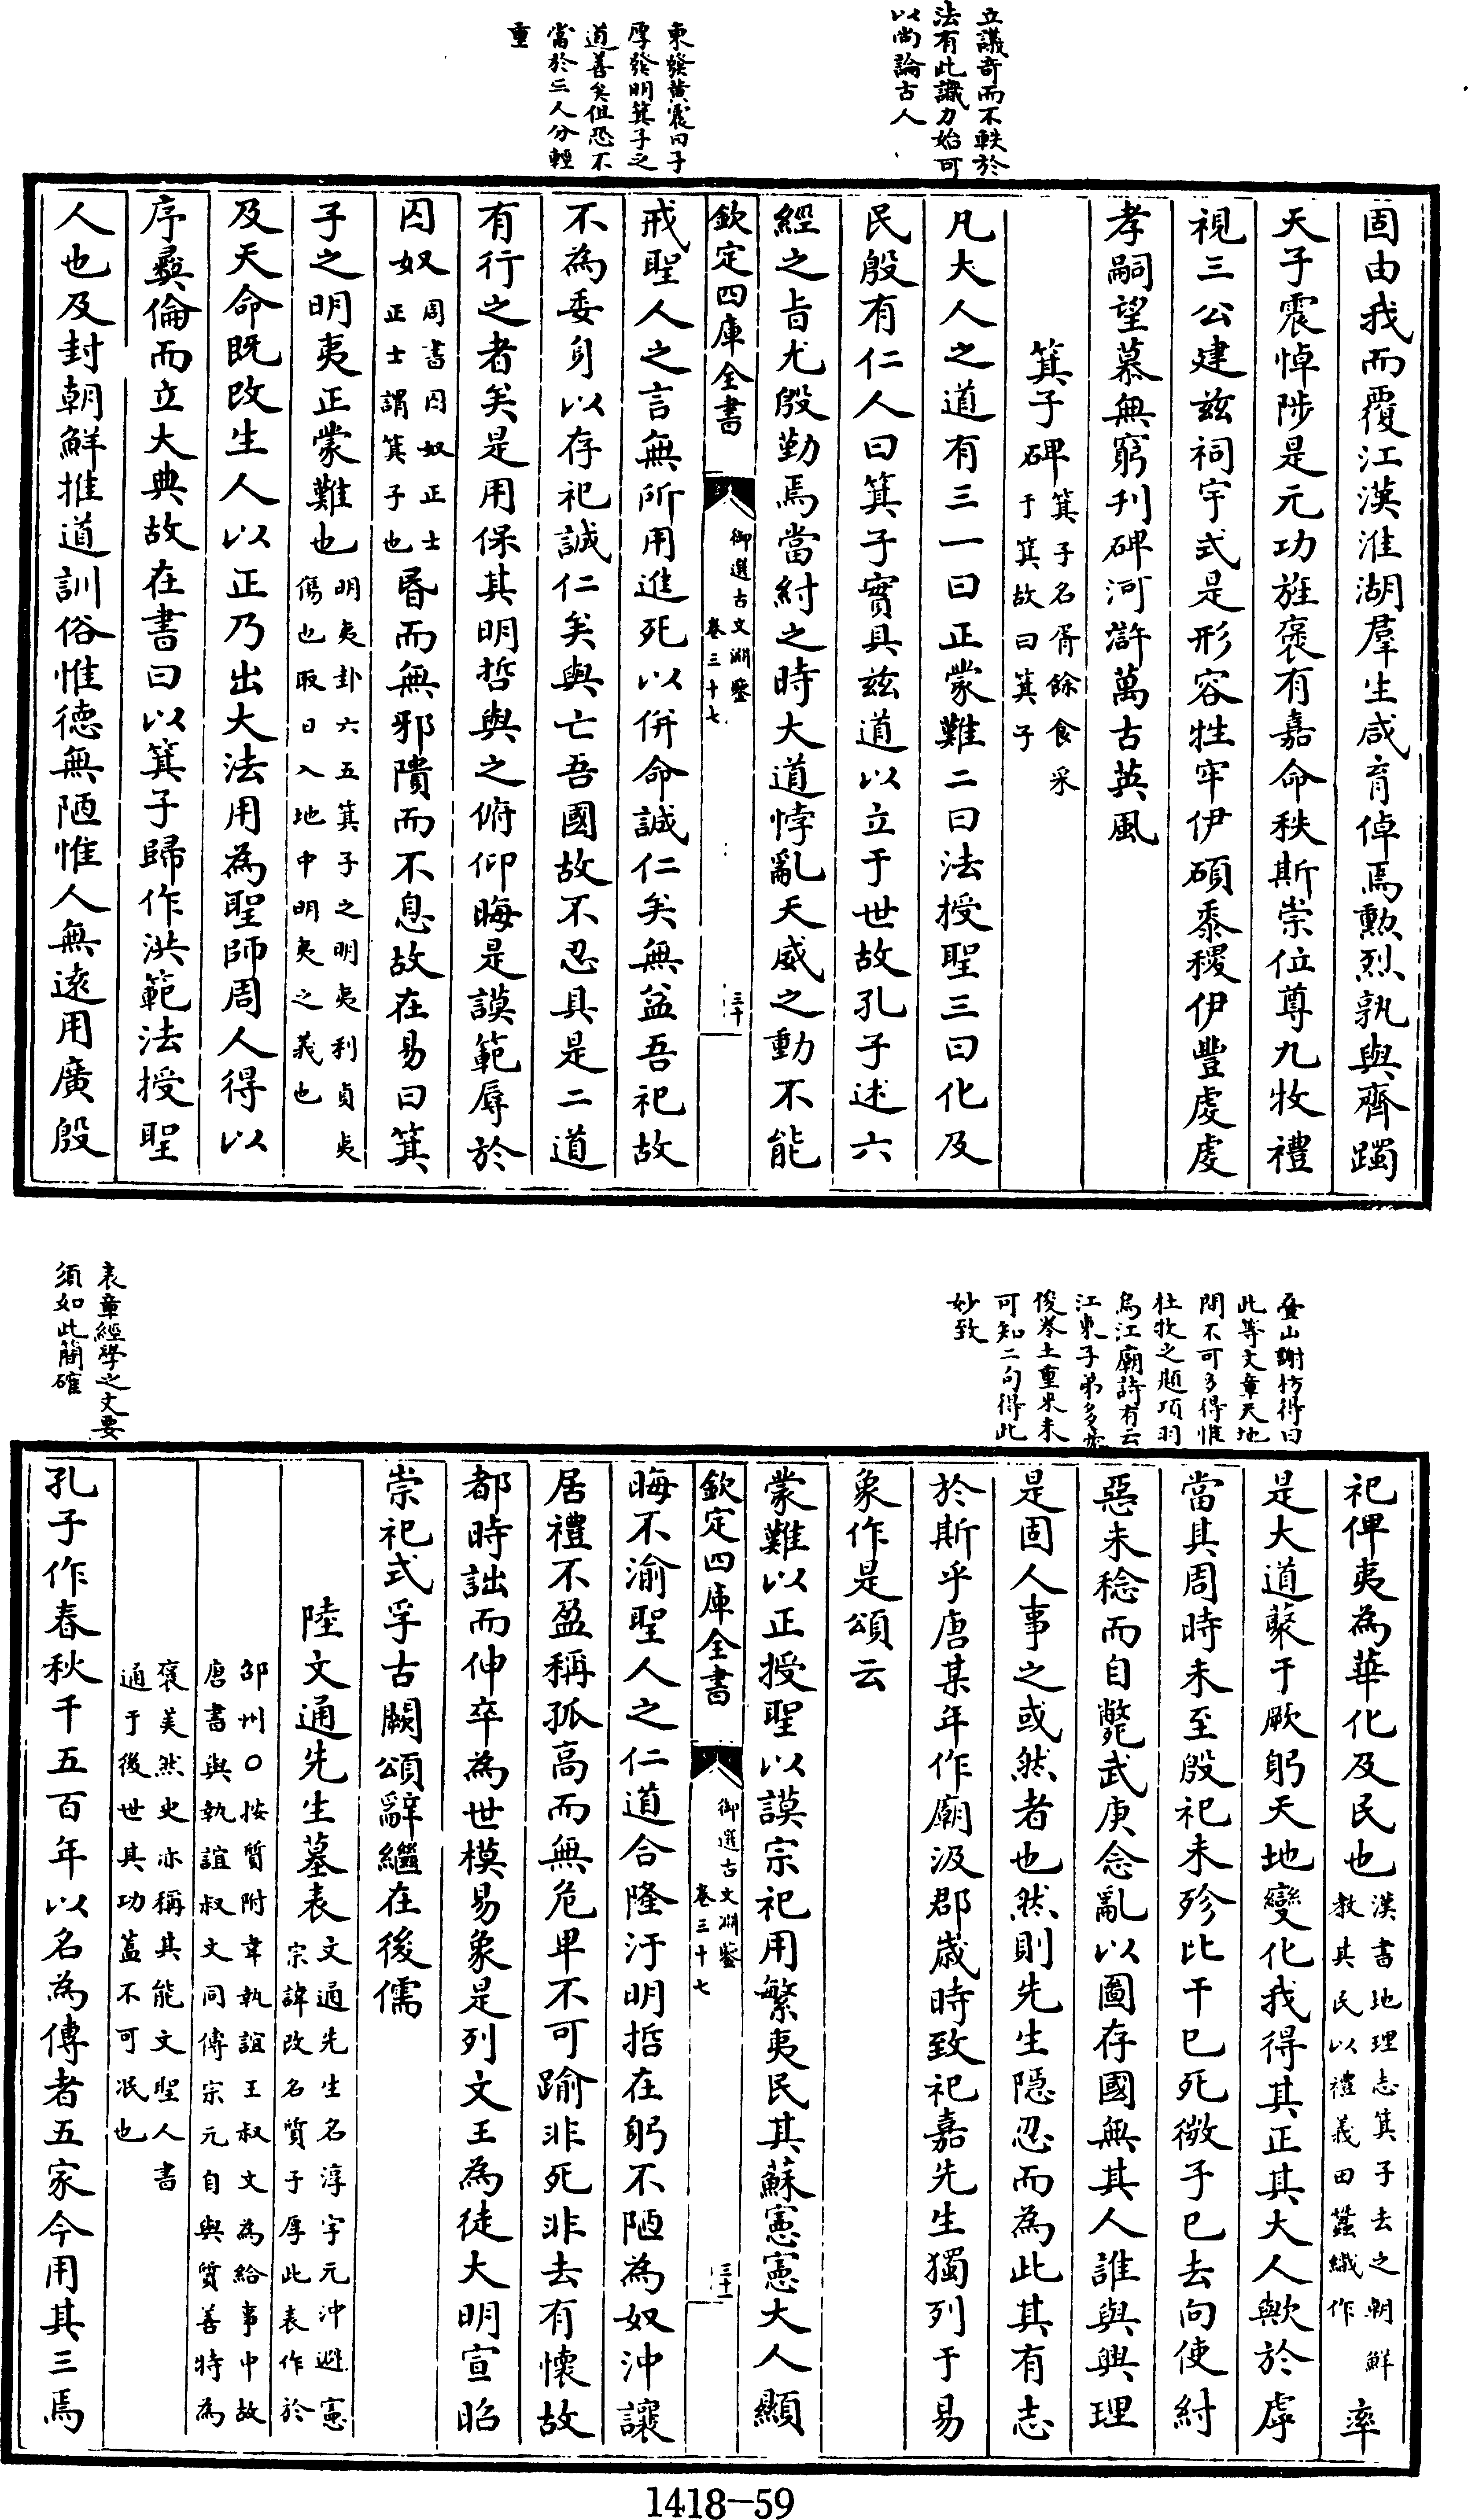 立議奇而不軼於
法有此識力始可
以尚論古人
東發黃震曰子
厚發明箕子之
道善矣但恐不
當於三人分輕
重
固由我而覆江漢淮湖羣生咸育倬焉勲烈孰與齊躅
天子震悼陟是元功旌褒有嘉命秩斯崇位尊九牧禮
視三公建兹祠宇式是形容牲牢伊碩黍稷伊豐虔虔
孝嗣望慕無窮刋碑河滸萬古英風
箕子碑箕子名胥餘食采
于箕故曰箕子
凡大人之道有三一曰正蒙難二曰法授聖三曰化及
民殷有仁人曰箕子實具兹道以立于世故孔子述六
經之旨尤殷勤焉當紂之時大道悖亂天威之動不能
欽定四庫全書
御選古文淵鑒
卷三十七
三十
戒聖人之言無所用進死以併命誠仁矣無益吾祀故
不為委身以存祀誠仁矣與亡吾國故不忍具是二道
有行之者矣是用保其明哲與之俯仰晦是謨範辱於
囚奴周書囚奴正士
正士謂箕子也昬而無邪隤而不息故在易曰箕
子之明夷正蒙難也明夷卦六五箕子之明夷利貞夷
傷也取日入地中明夷之義也
及天命既改生人以正乃出大法用為聖師周人得以
序彛倫而立大典故在書曰以箕子歸作洪範法授聖
人也及封朝鮮推道訓俗惟德無陋惟人無遠用廣殷
疊山謝枋得曰
此等文章天地
間不可多得惟
杜牧之題項羽
烏江廟詩有云
江東子弟多豪
俊卷土重來未
可知二句得此
妙致
表章經學之文要
須如此簡確
祀俾夷為華化及民也漢書地理志箕子去之朝鮮
教其民以禮義田蠶織作率
是大道藂于厥躬天地變化我得其正其大人歟於虖
當其周時未至殷祀未殄比干已死微子已去向使紂
惡未稔而自斃武庚念亂以圖存國無其人誰與興理
是固人事之或然者也然則先生隠忍而為此其有志
於斯乎唐某年作廟汲郡歲時致祀嘉先生獨列于易
象作是頌云
蒙難以正授聖以謨宗祀用繁夷民其蘇憲憲大人顯
欽定四庫全書
御選古文淵鑒
卷三十七
三十一
晦不渝聖人之仁道合隆汙明哲在躬不陋為奴沖讓
居禮不盈稱孤高而無危卑不可踰非死非去有懷故
都時詘而伸卒為世模易象是列文王為徒大明宣昭
崇祀式孚古闕頌辭繼在後儒
陸文通先生墓表文通先生名淳字元沖避憲
宗諱改名質子厚此表作於
邵州○按質附韋執誼王叔文為給事中故
唐書與執誼叔文同傳宗元自與質善特為
褒美然史亦稱其能文聖人書
通于後世其功蓋不可泯也
孔子作春秋千五百年以名為傳者五家今用其三焉
1418-59